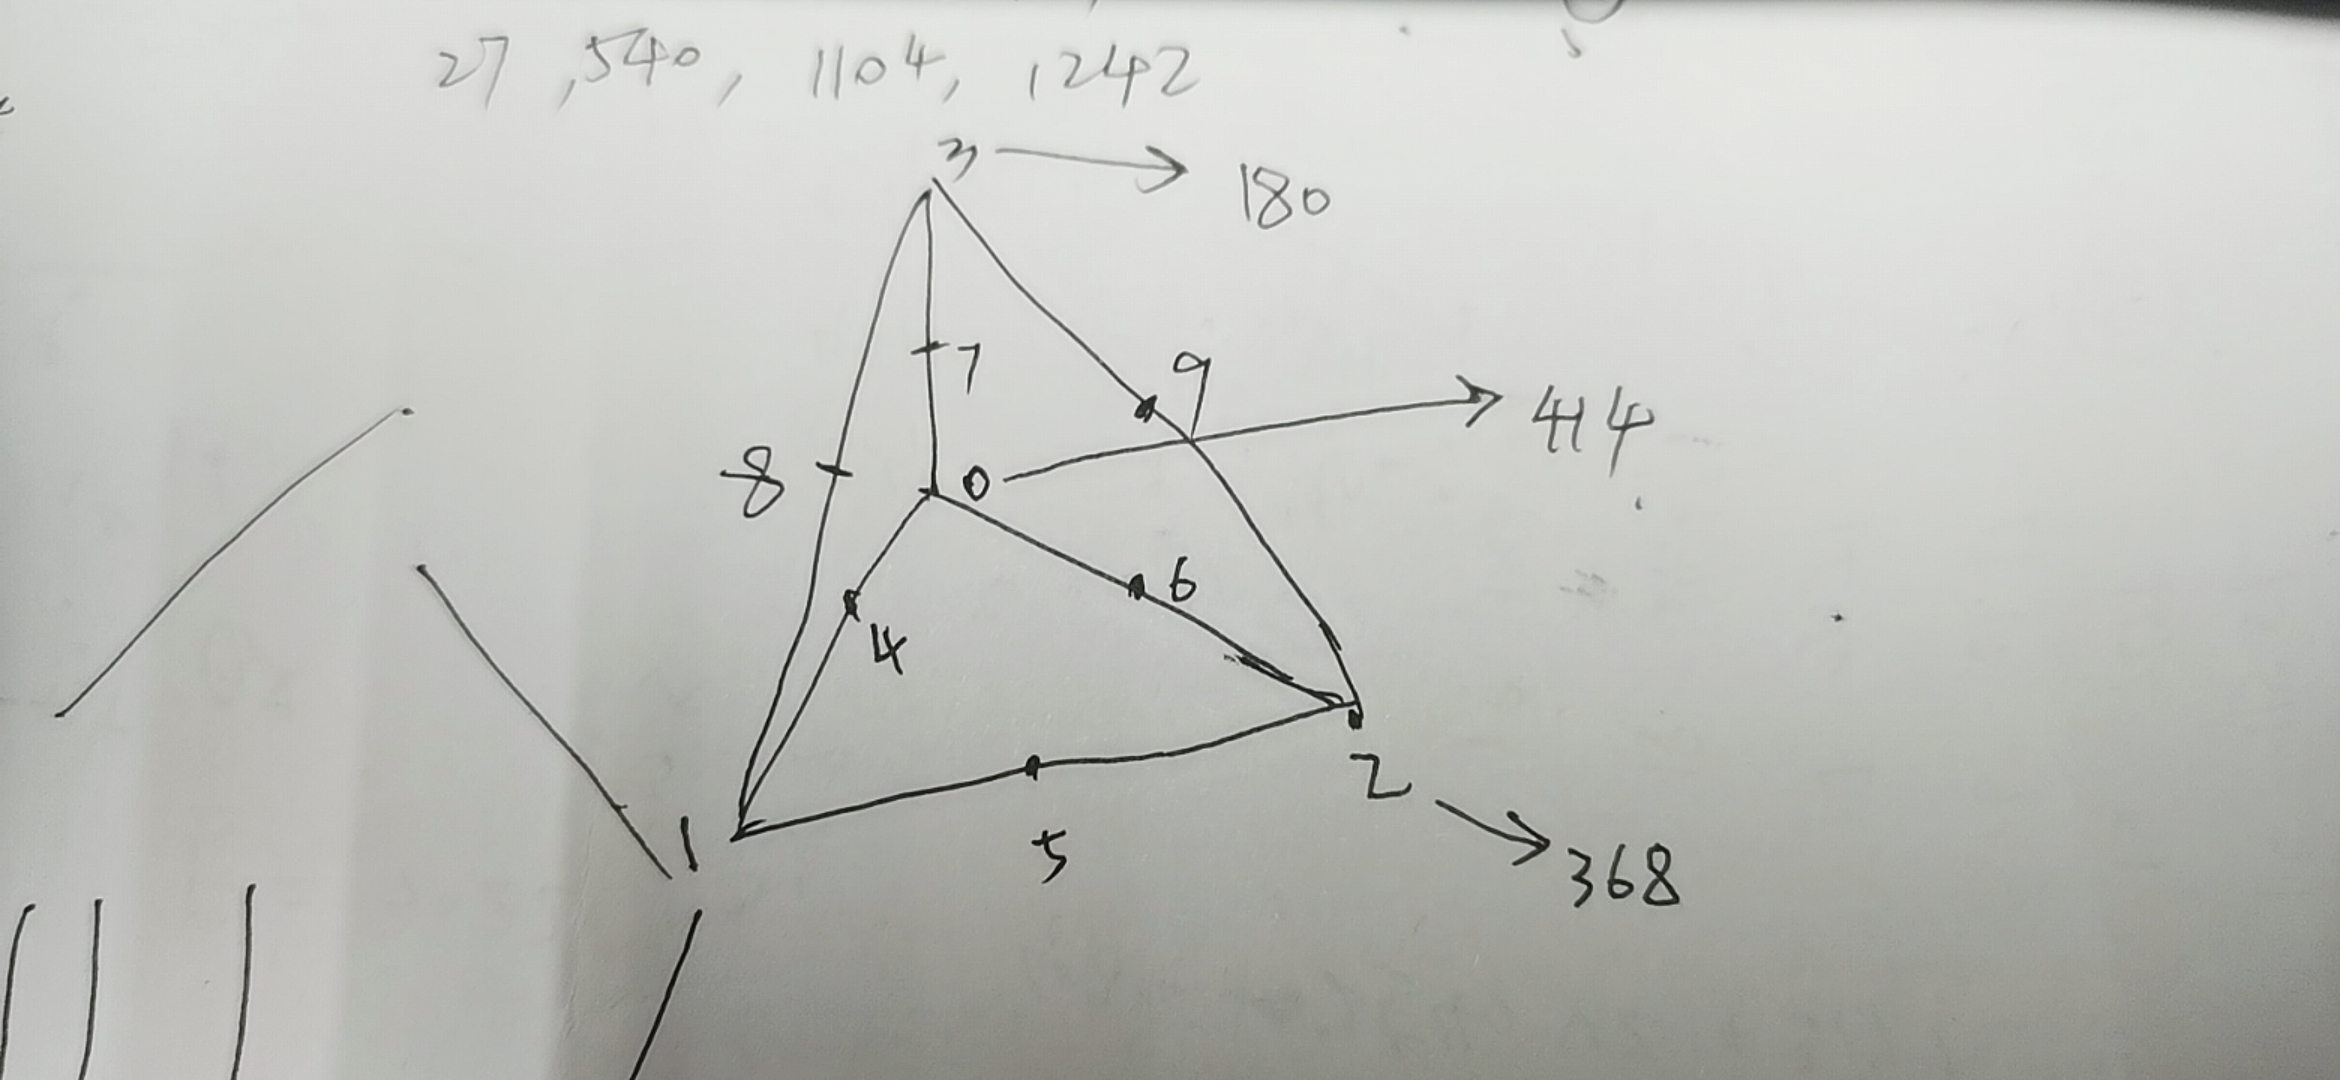 27, 540, 1104, 1242
3 → 180
7
9
8
0 → 414
6
4
2 → 368
1
5